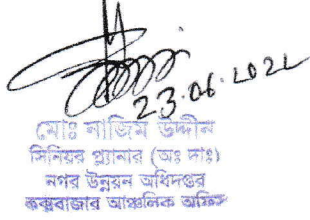 23.06.2022
মোঃ নাজিম উদ্দীন
সিনিয়র প্ল্যানার (অঃ দাঃ)
নগর উন্নয়ন অধিদপ্তর
কক্সবাজার আঞ্চলিক অফিস